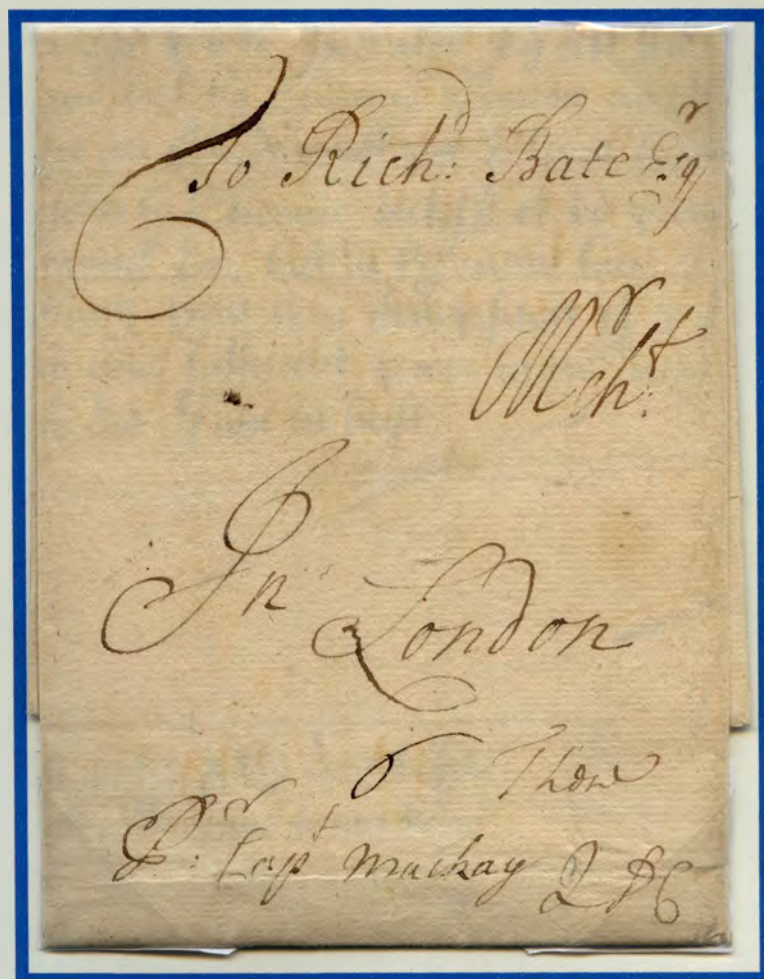 To Richd: Bate Esqr
Mrcht:
In London
Pr: Capt Mackay Q D C